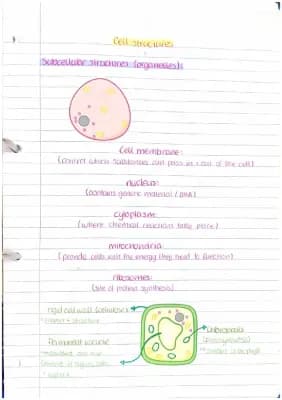 Cell structures
Subcellular structures (organelles):
Cell membrane:
(control which substances can pass in + out of the cell)
nucleus:
(contains genetic material / DNA)
cytoplasm:
(where chemical reactions take place)
mitochondria:
(provide cells with the energy they need to function)
ribosomes:
(site of protein synthesis)
rigid cell wall (cellulose)
support + structure
Permanent vacuole
Chloroplasts
(photosynthesis)
contains chlorophyll